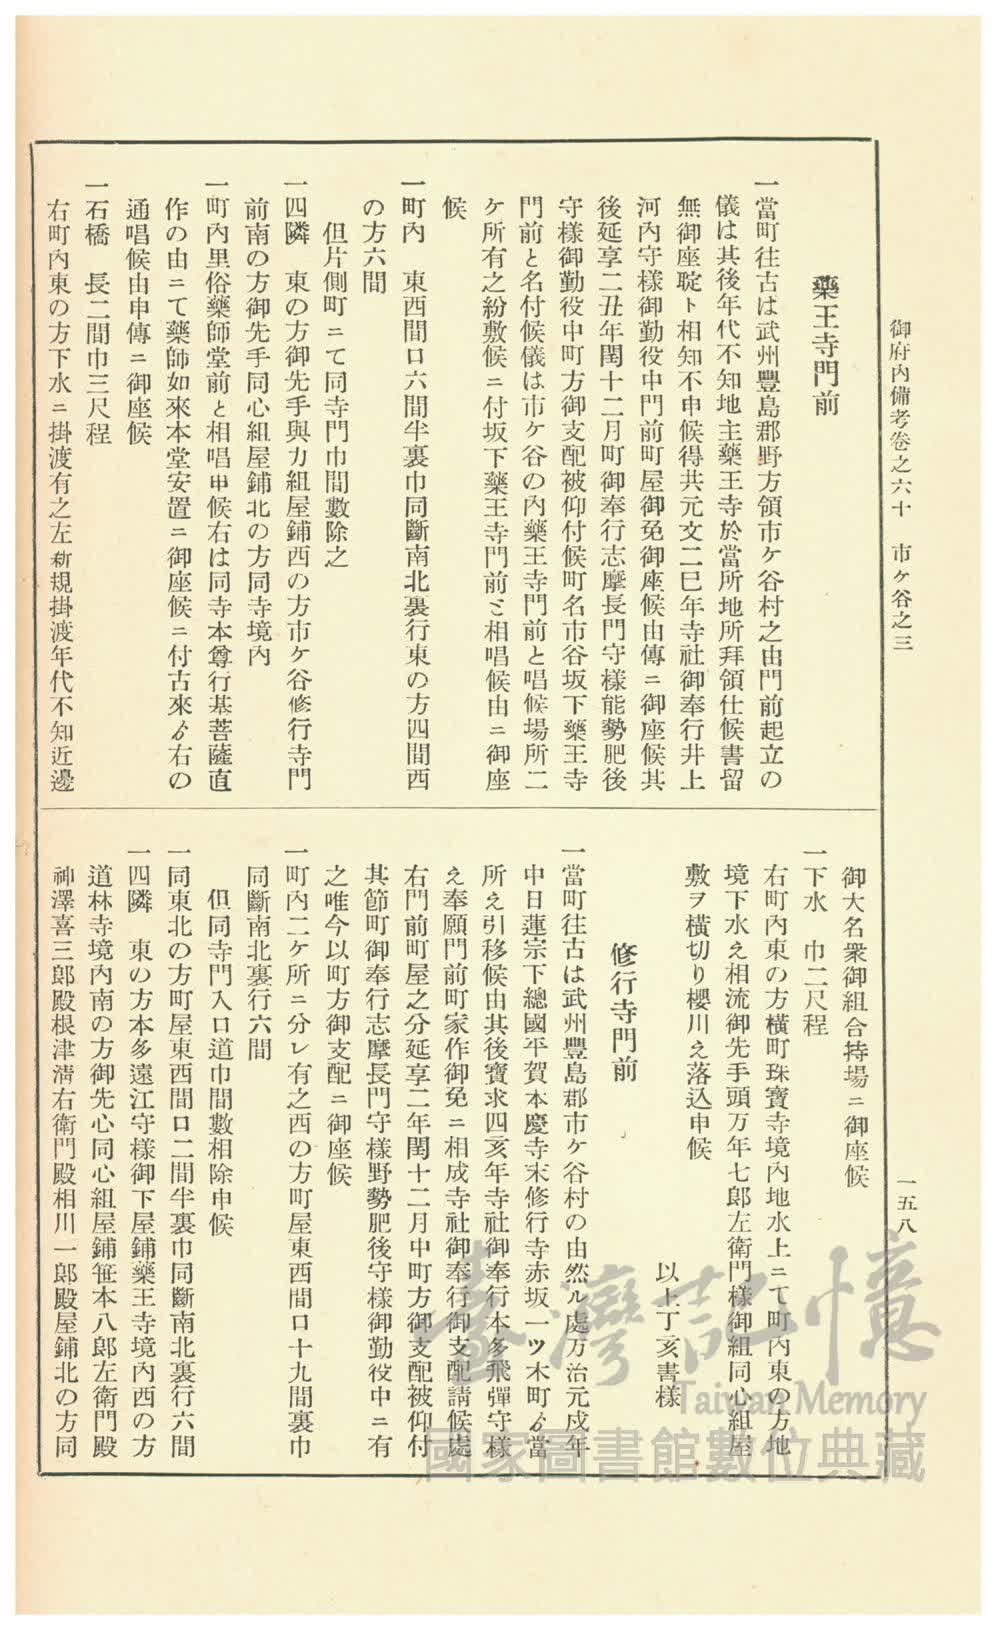 御府內備考卷之六十　市ケ谷之三
一五八
藥王寺門前
一當町往古は武州豐島郡野方領市ケ谷村之由門前起立の
儀は其後年代不知地主藥王寺於當所地所拜領仕候書留
無御座聢ト相知不申候得共元文二巳年寺社御奉行井上
河內守樣御勤役中門前町屋御免御座候由傳ニ御座候其
後延享二丑年閏十二月町御奉行志摩長門守樣能勢肥後
守樣御勤役中町方御支配被仰付候町名市谷坂下藥王寺
門前と名付候儀は市ケ谷の內藥王寺門前と唱候場所二
ケ所有之紛敷候ニ付坂下藥王寺門前ミ相唱候由ニ御座
候
一町內　東西間口六間半裏巾同斷南北裏行東の方四間西
の方六間
但片側町ニて同寺門巾間數除之
一四隣　東の方御先手與力組屋鋪西の方市ケ谷修行寺門
前南の方御先手同心組屋鋪北の方同寺境內
一町內里俗藥師堂前と相唱申候右は同寺本尊行基菩薩直
作の由ニて藥師如來本堂安置ニ御座候ニ付古來ゟ右の
通唱候由申傳ニ御座候
一石橋　長二間巾三尺程
右町內東の方下水ニ掛渡有之左新規掛渡年代不知近邊
御大名衆御組合持場ニ御座候
一下水　巾二尺程
右町內東の方橫町珠寶寺境內地水上ニて町內東の方地
境下水え相流御先手頭万年七郎左衞門樣御組同心組屋
敷ヲ橫切り櫻川え落込申候
以上丁亥書樣
修行寺門前
一當町往古は武州豐島郡市ケ谷村の由然ル處万治元戌年
中日蓮宗下總國平賀本慶寺末修行寺赤坂一ツ木町ゟ當
所え引移候由其後寶永四亥年寺社御奉行本多飛彈守樣
え奉願門前町家作御免ニ相成寺社御奉行御支配請候處
右門前町屋之分延享二年閏十二月中町方御支配被仰付
其節町御奉行志摩長門守樣野勢肥後守樣御勤役中ニ有
之唯今以町方御支配ニ御座候
一町內二ケ所ニ分レ有之西の方町屋東西間口十九間裏巾
同斷南北裏行六間
但同寺門入口道巾間數相除申候
一同東北の方町屋東西間口二間半裏巾同斷南北裏行六間
一四隣　東の方本多遠江守樣御下屋鋪藥王寺境內西の方
道林寺境內南の方御先心同心組屋鋪笹本八郎左衞門殿
神澤喜三郎殿根津淸右衞門殿相川一郎殿屋鋪北の方同
臺灣記憶
Taiwan Memory
國家圖書館數位典藏